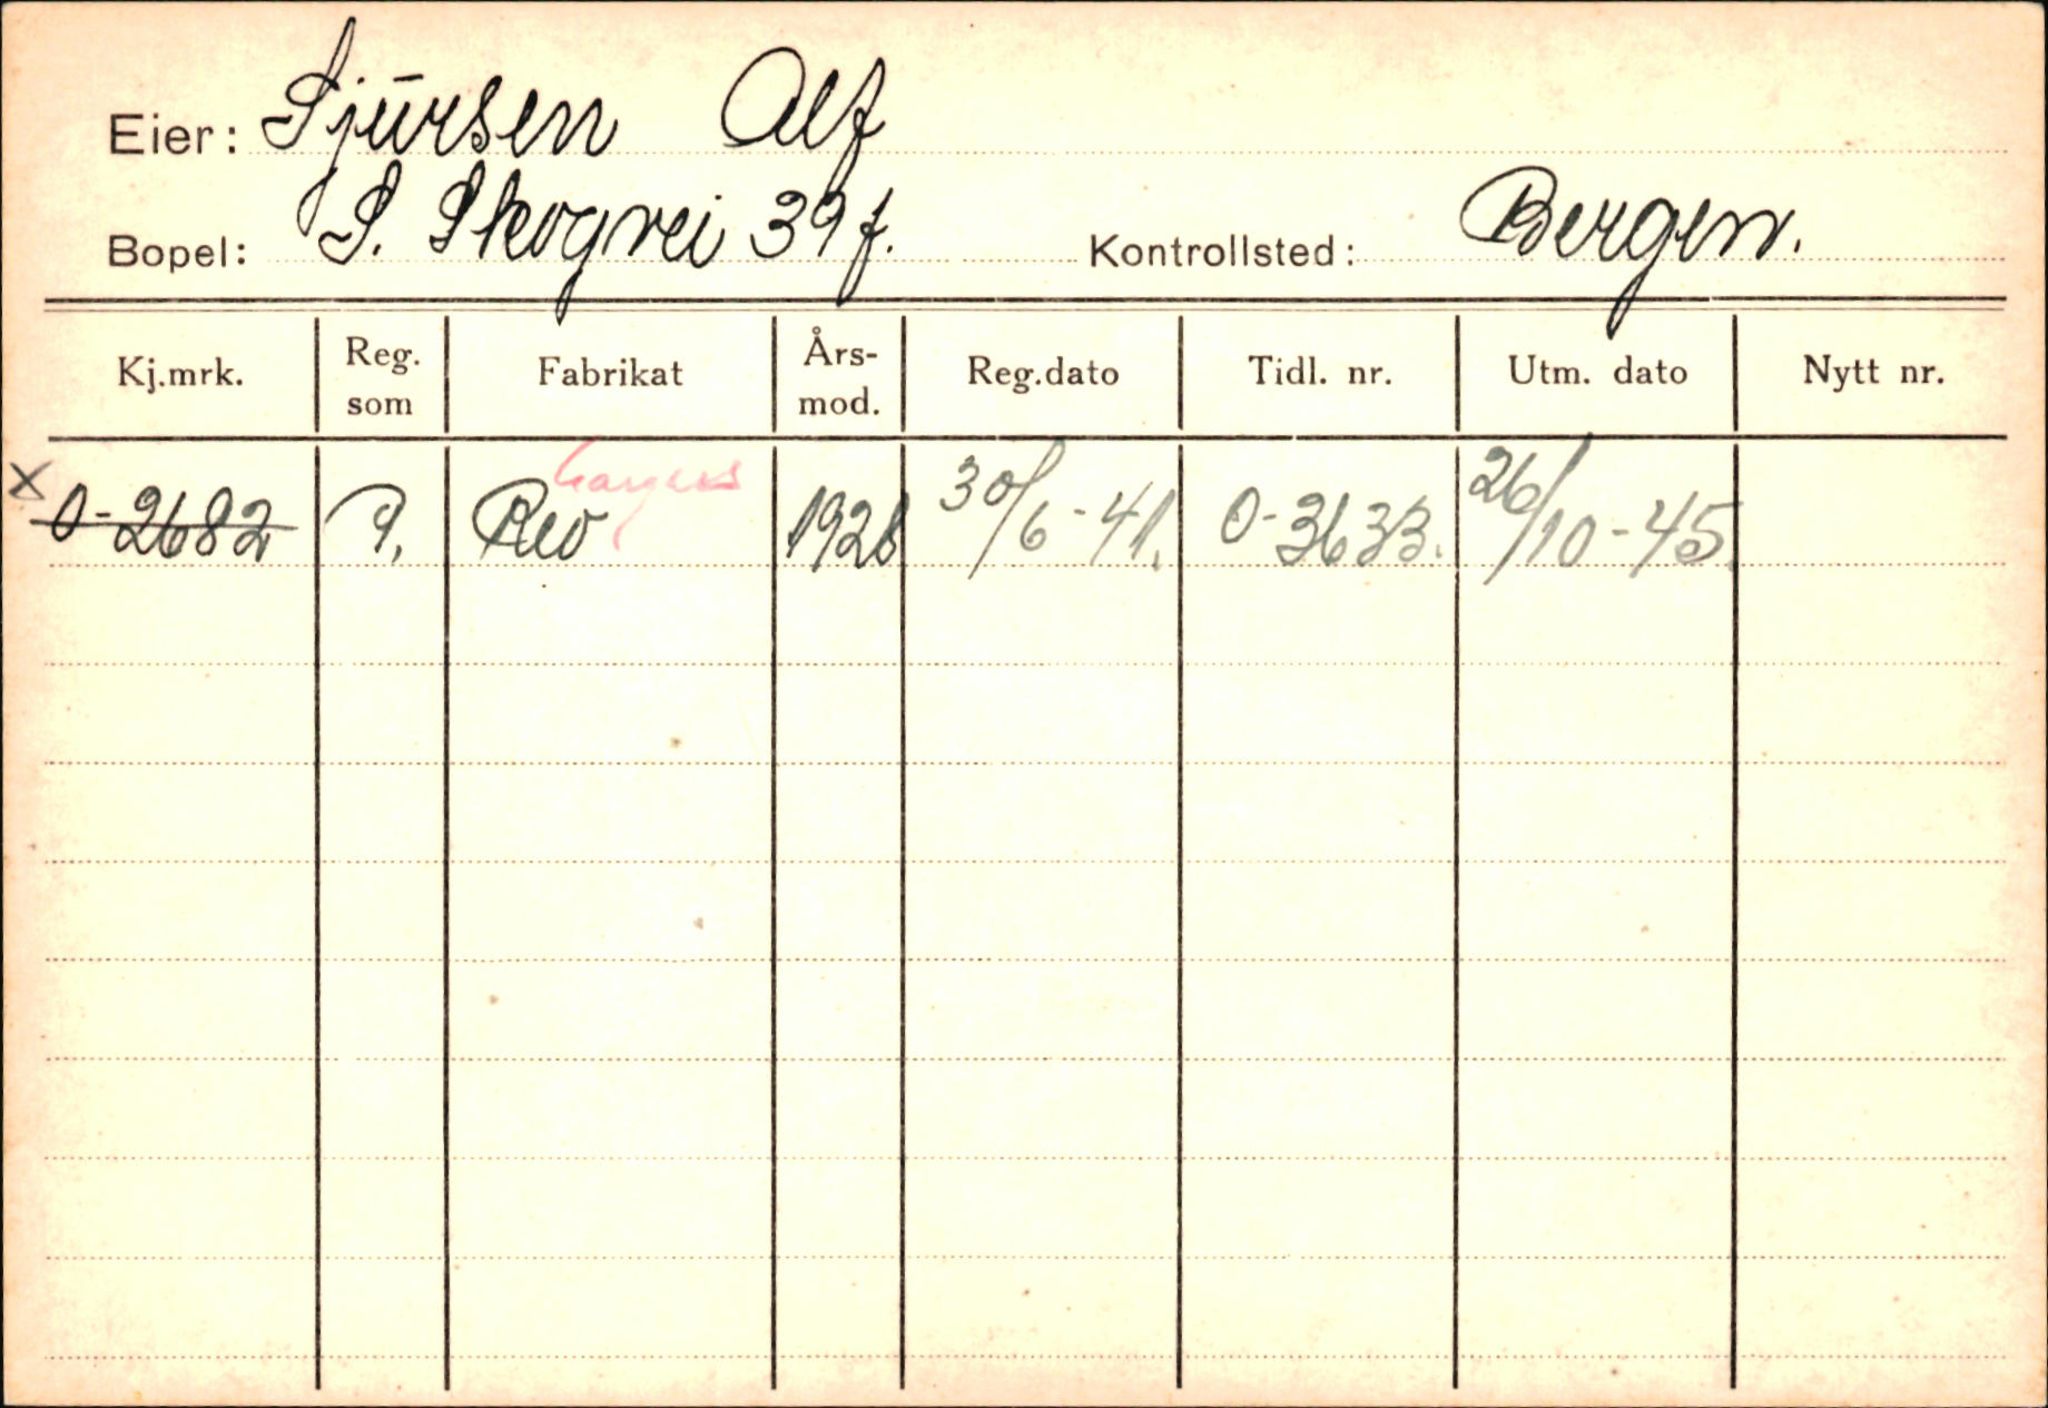 Eier: Sjūrsen Alf
Bopel: S. Skogvei 39 f. Kontrollsted: Bergen.
Kj.mrk. Reg. som Fabrikat Års-mod. Reg.dato Tidl. nr. Utm. dato Nytt nr.
x O-2682 P. Reo 1928 30/6-41. O-3633. 26/10-45.